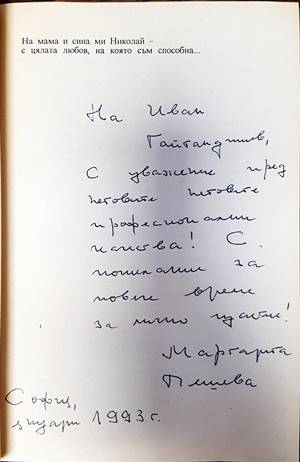 На мама и сина ми Николай –
с цялата любов, на която съм способна...
На Иван
Гайтанджиев,
С уважение пред
неговите неговите
професионални
качества! С
пожелание за
повече време
за лично щастие!
Маргарита
Пешева
София,
януари 1993 г.